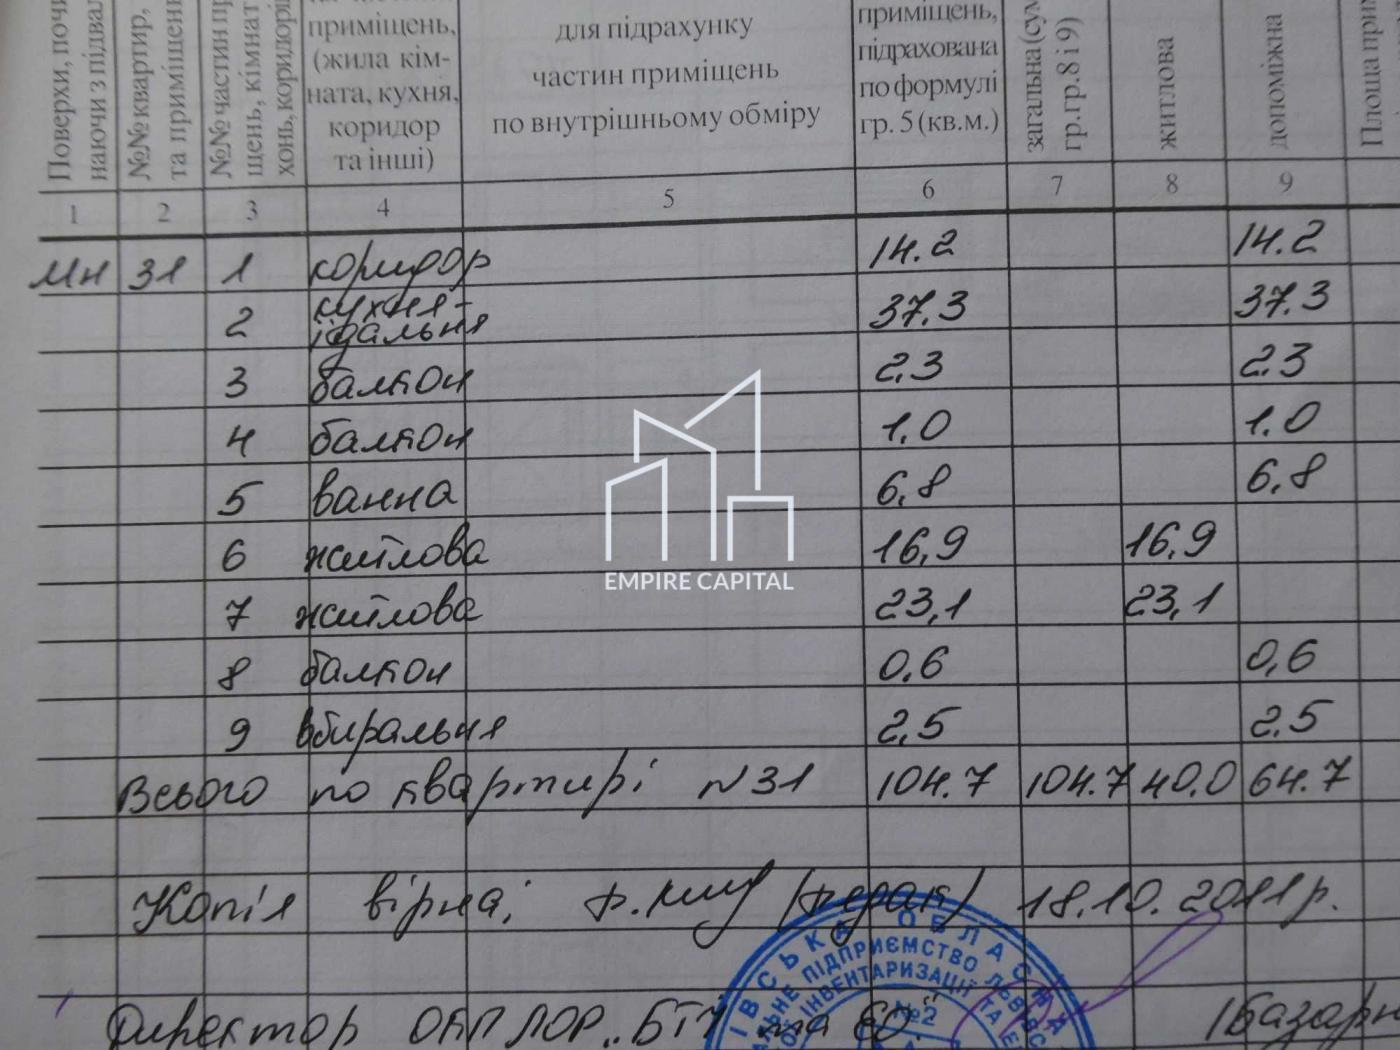 Поверхи, почи-
наючи з підвал
№№ квартир,
та приміщень
№№ частин пр
щень, кімнат
хонь, коридор
приміщень,
(жила кім-
ната, кухня,
коридор
та інші)
для підрахунку
частин приміщень
по внутрішньому обміру
приміщень,
підрахована
по формулі
гр. 5 (кв.м.)
загальна (сум
гр.гр.8 і 9)
житлова
допоміжна
Площа прим
1 2 3 4 5 6 7 8 9
Мн 31 1 коридор 14.2 14.2
2 кухня-їдальня 37.3 37.3
3 балкон 2,3 2.3
4 балкон 1.0 1.0
5 ванна 6,8 6,8
6 житлова 16,9 16,9
7 житлова 23,1 23,1
8 балкон 0,6 0,6
9 вбиральня 2,5 2.5
Всього по квартирі N31 104.7 104.7 40.0 64.7
Копія вірна: 18.10.2011р.
Директор ОКП ЛОР „БТІ та ЕО"
ІВСЬКА ОБЛАСНА
АЛЬНЕ ПІДПРИЄМСТВО ЛЬВІВС
ІНВЕНТАРИЗАЦІЇ ТА Е
№2
EMPIRE CAPITAL